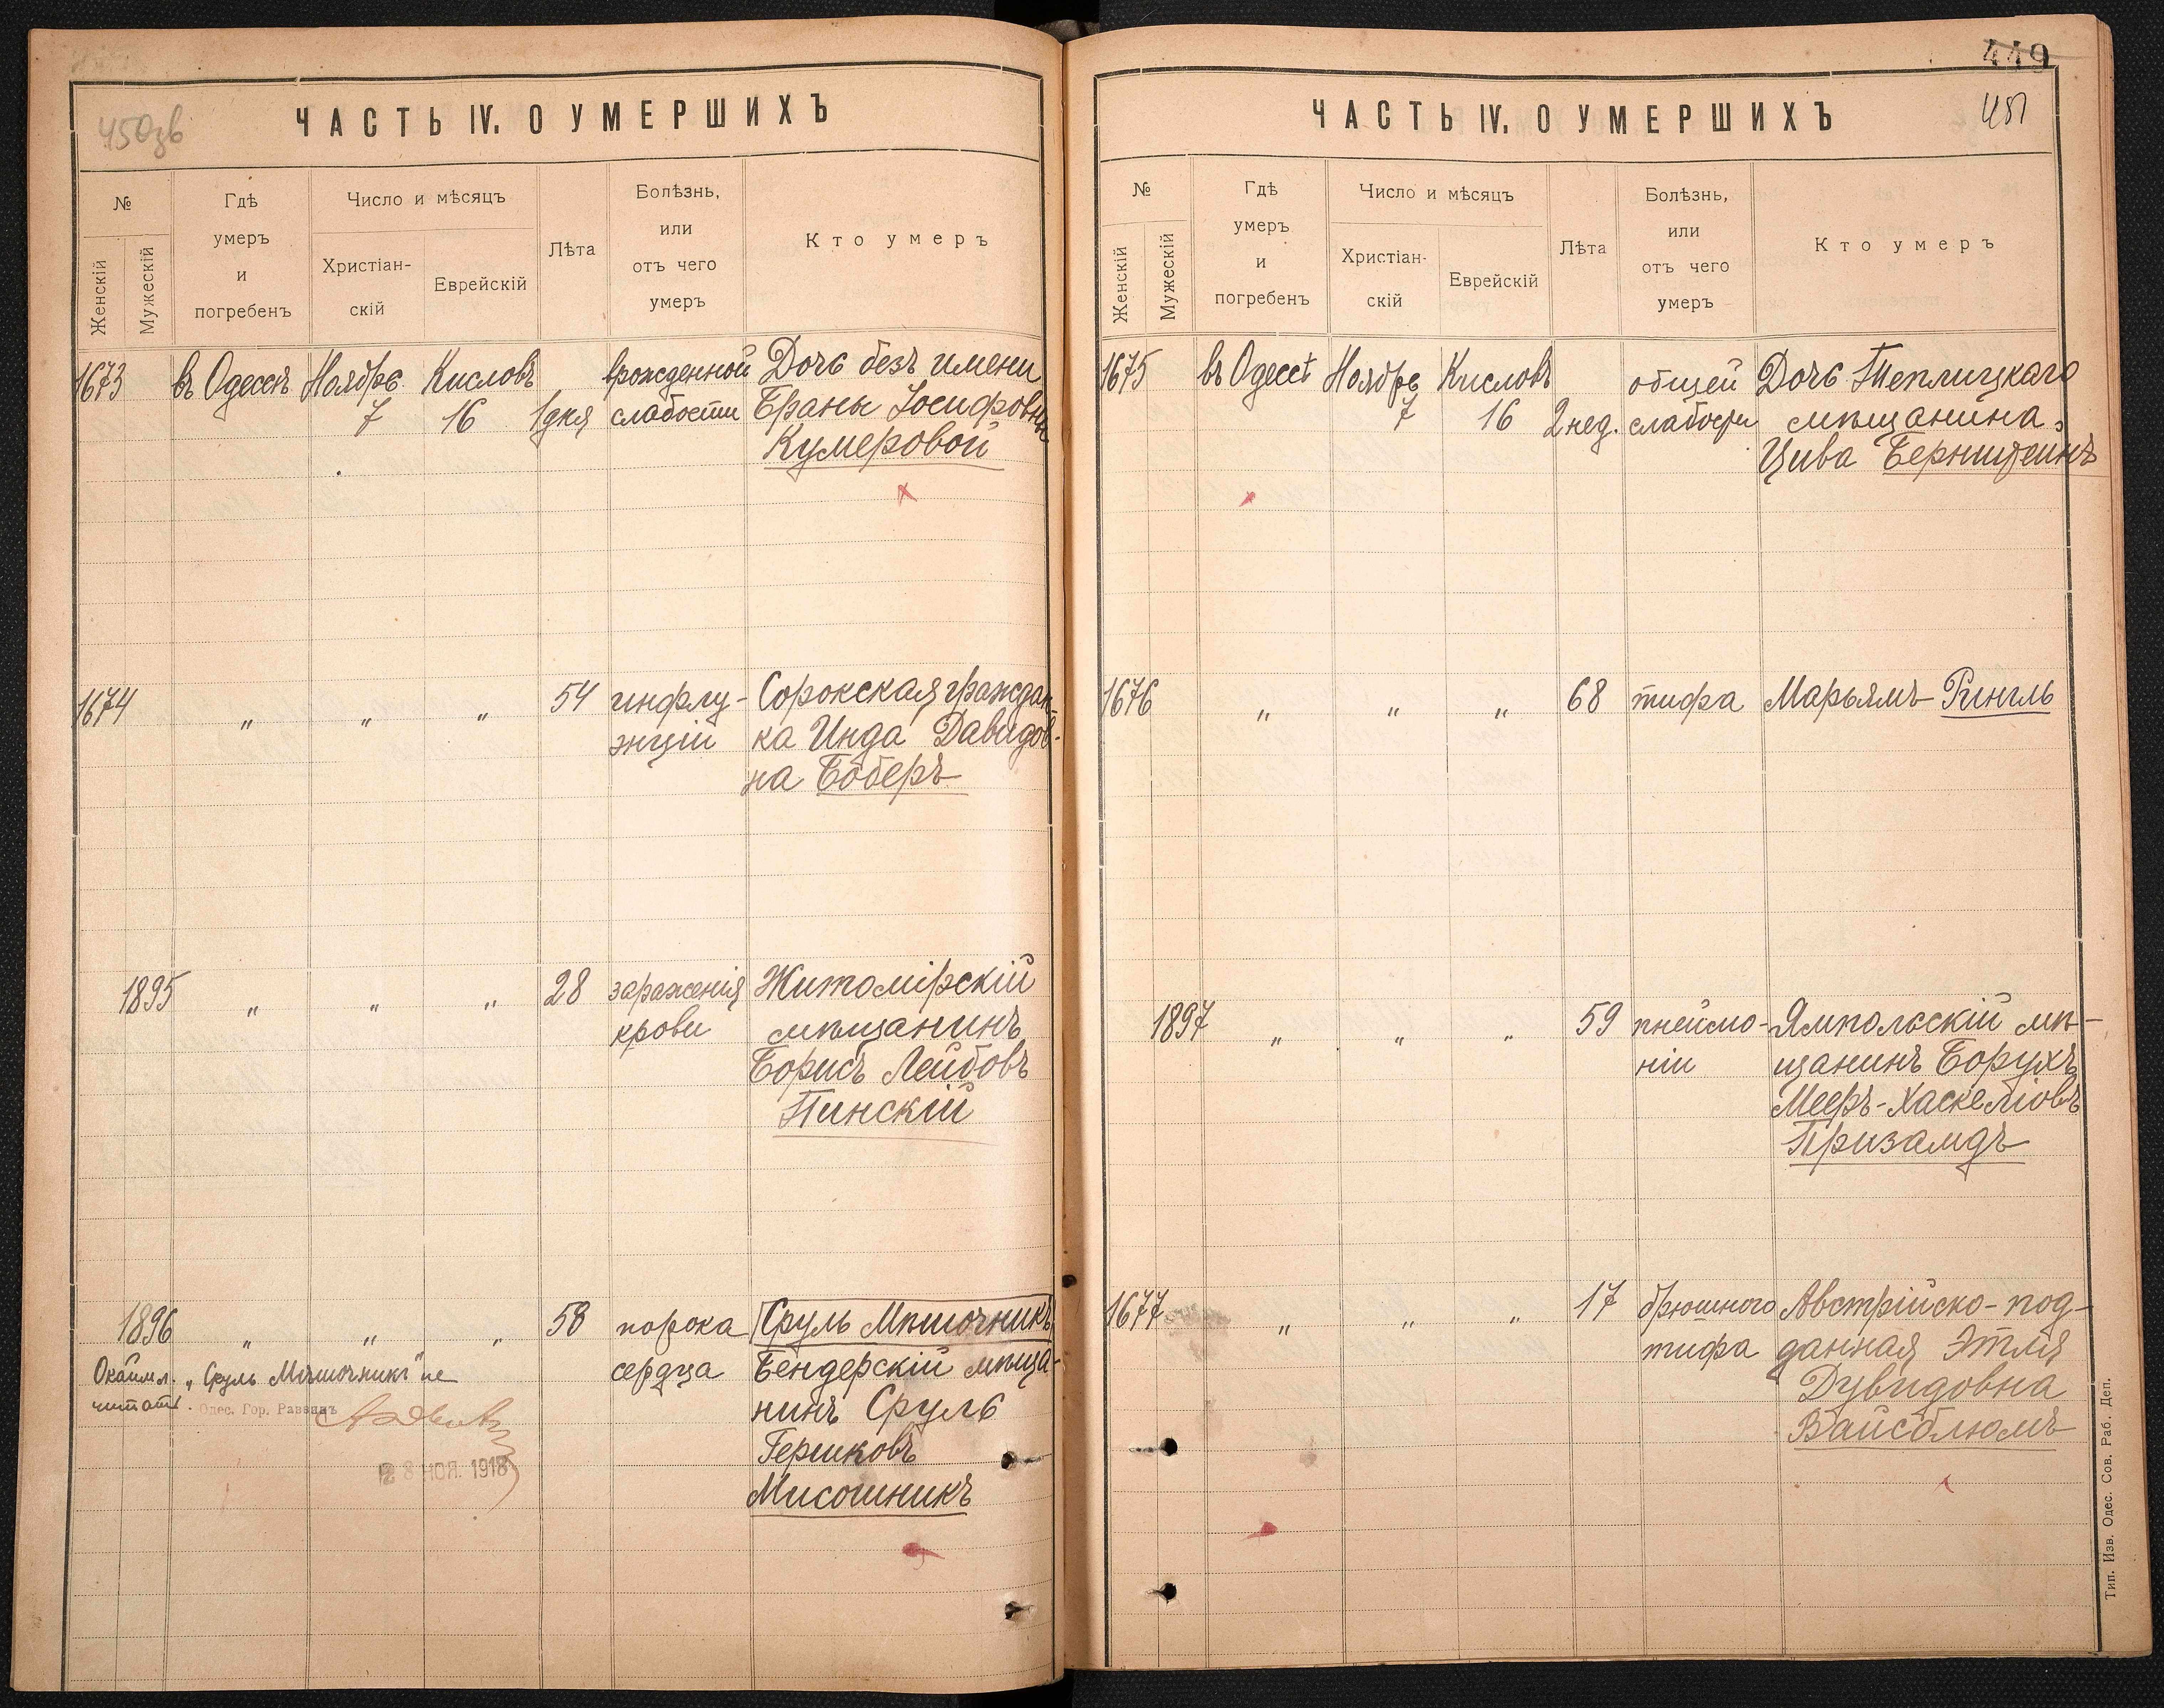 450зв
ЧАСТЬ IV. О УМЕРШИХЪ
№
Женскій
Мужескій
Гдѣ
умеръ
и
погребенъ
Число и мѣсяцъ
Христіан-
скій
Еврейскій
Лѣта
Болѣзнь,
или
отъ чего
умеръ
Кто умеръ
1673 въ Одессѣ Ноябрь Кисловъ врожденной Дочь безъ имени
7 16 1 дня слабости Браны Іосифовны
Кумеровой
1674 " " " 54 инфлу- Сорокская граждан-
энціи ка Инда Давидов-
на Боберъ
1895 " " " 28 зараженія Житомірскій
крови мѣщанинъ
Борисъ Лейбовъ
Пинскій
1896 " " " 58 порока Сруль Мѣшочникъ
сердца Бендерскій мѣща-
нинъ Сруль
Гершковъ
Мисошникъ
Окаймл. „Сруль Мѣшочникъ" не
читать. Одес. Гор. Раввинъ
28 НОЯ. 1918
449
451
ЧАСТЬ IV. О УМЕРШИХЪ
№
Женскій
Мужескій
Гдѣ
умеръ
и
погребенъ
Число и мѣсяцъ
Христіан-
скій
Еврейскій
Лѣта
Болѣзнь,
или
отъ чего
умеръ
Кто умеръ
1675 въ Одессѣ Ноябрь Кисловъ общей Дочь Теплицкаго
7 16 2 нед. слабости мѣщанина
Цива Бернштейнъ
1676 " " " 68 тифа Марьямъ Рингль
1897 " " " 59 пнеймо- Ямпольскій мѣ-
ніи щанинъ Борухъ
Мееръ-Хаскеліовъ
Призамдъ
1677 " " " 17 брюшного Австрійско-под-
тифа данная Этля
Дувидовна
Вайсблюмъ
Тип. Изв. Одес. Сов. Раб. Деп.